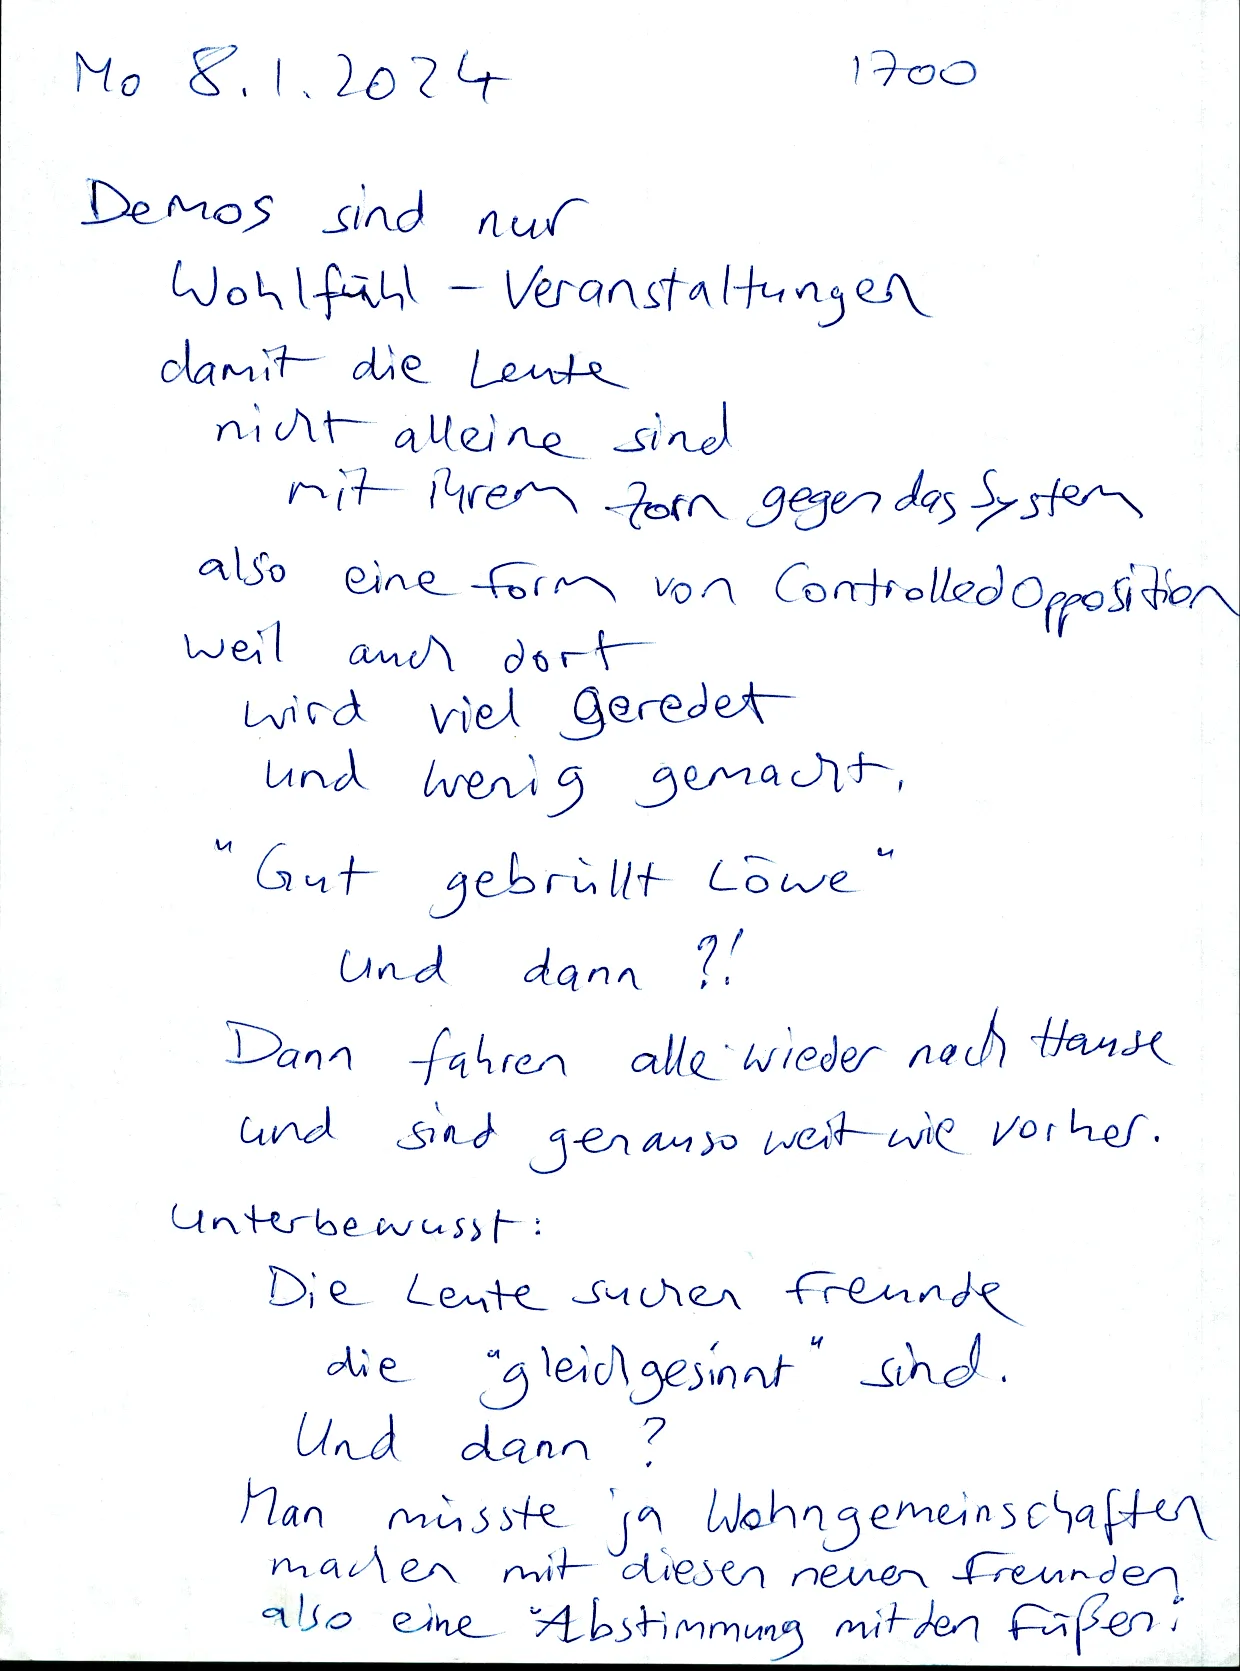 Mo 8.1.2024 1700
Demos sind nur
Wohlfühl - Veranstaltungen
damit die Leute
nicht alleine sind
mit ihrem Zorn gegen das System
also eine Form von Controlled Opposition
weil auch dort
wird viel geredet
und wenig gemacht.
"Gut gebrüllt Löwe"
und dann ?!
Dann fahren alle wieder nach Hause
und sind genauso weit wie vorher.
Unterbewusst:
Die Leute suchen Freunde
die "gleichgesinnt" sind.
Und dann ?
Man müsste ja Wohngemeinschaften
machen mit diesen neuen Freunden
also eine "Abstimmung mit den Füßen".